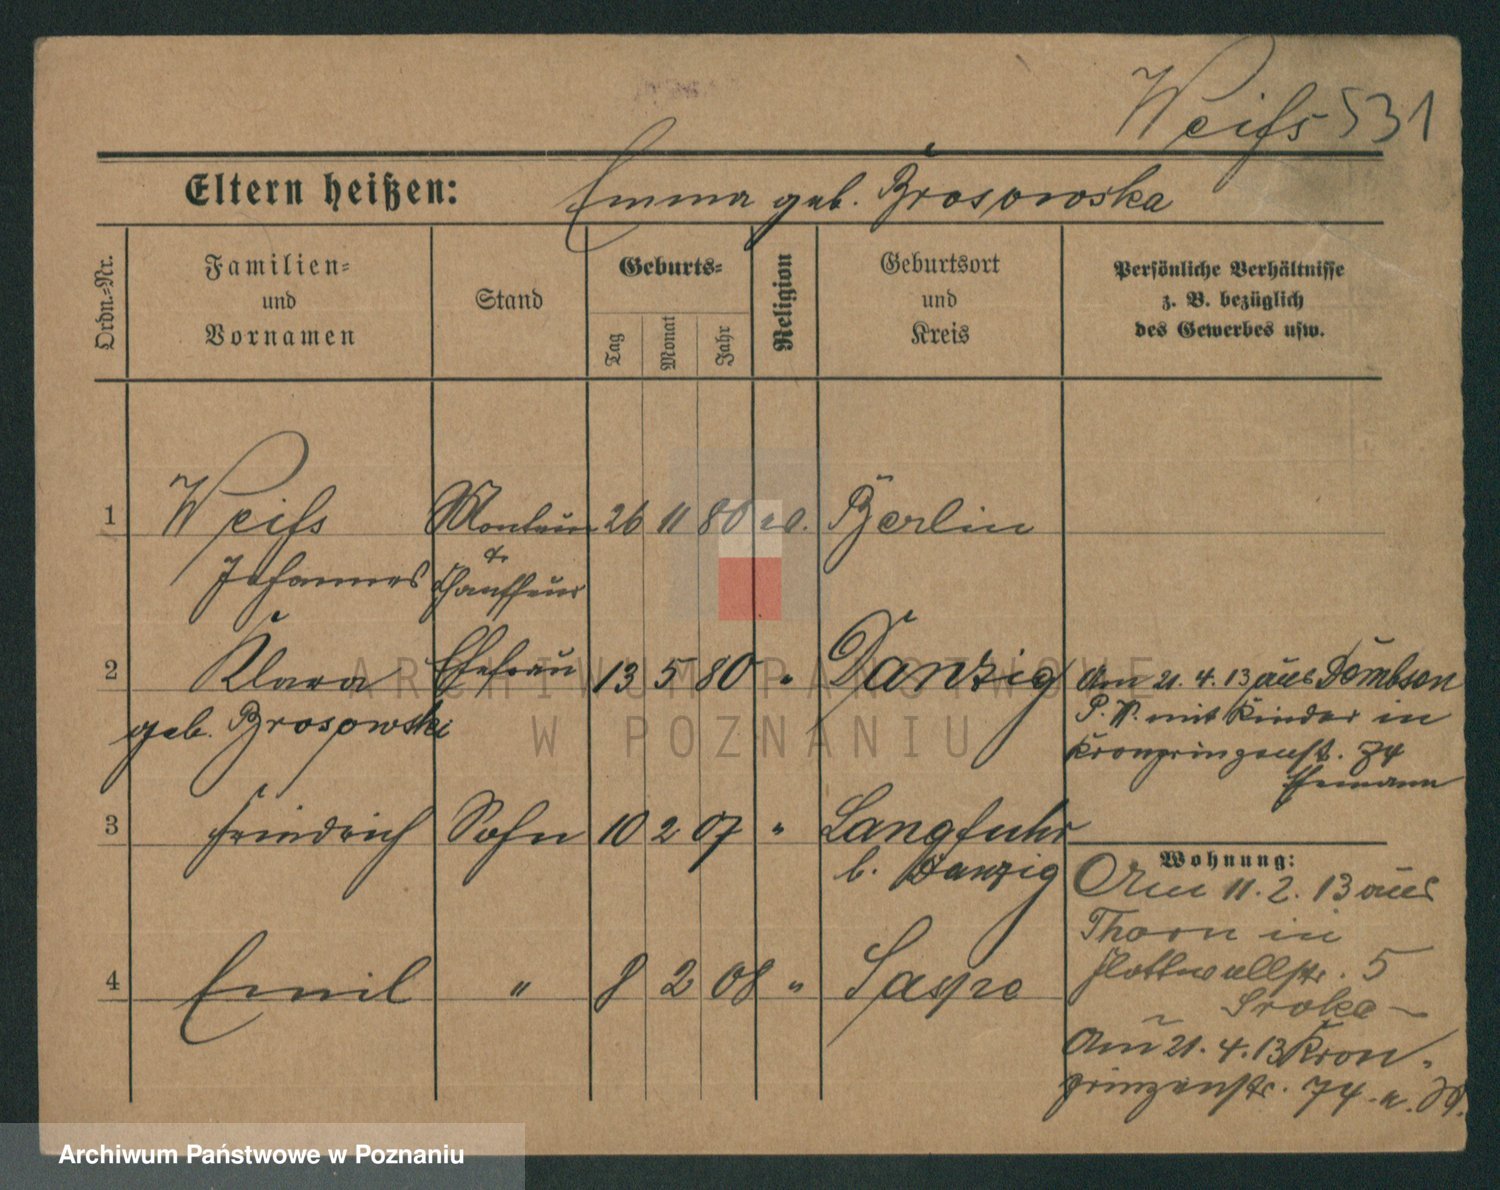 Weiſs 531
Eltern heißen: Emma geb. Brosowska
Ordn.-Nr.
Familien-
und
Vornamen
Stand
Geburts-
Tag
Monat
Jahr
Religion
Geburtsort
und
Kreis
Persönliche Verhältnisse
z. B. bezüglich
des Gewerbes usw.
1 Weiſs Monteur 26 11 80 ev. Berlin
Johannes & Chauffeur
2 Klara Ehefrau 13 5 80 " Danzig
geb. Brosowski
Am 21. 4. 13 aus Dembsen
P. W. mit Kinder in
Kronprinzenst. 74
Ehemann
3 Friedrich Sohn 10 2 07 " Langfuhr
b. Danzig
4 Emil " 8 2 08 " Saspe
Wohnung:
Am 11. 2. 13 aus
Thorn in
Flottwellstr. 5
Sroka
Am 21. 4. 13 Kron-
prinzenstr. 74
ARCHIWUM PAŃSTWOWE
W POZNANIU
Archiwum Państwowe w Poznaniu